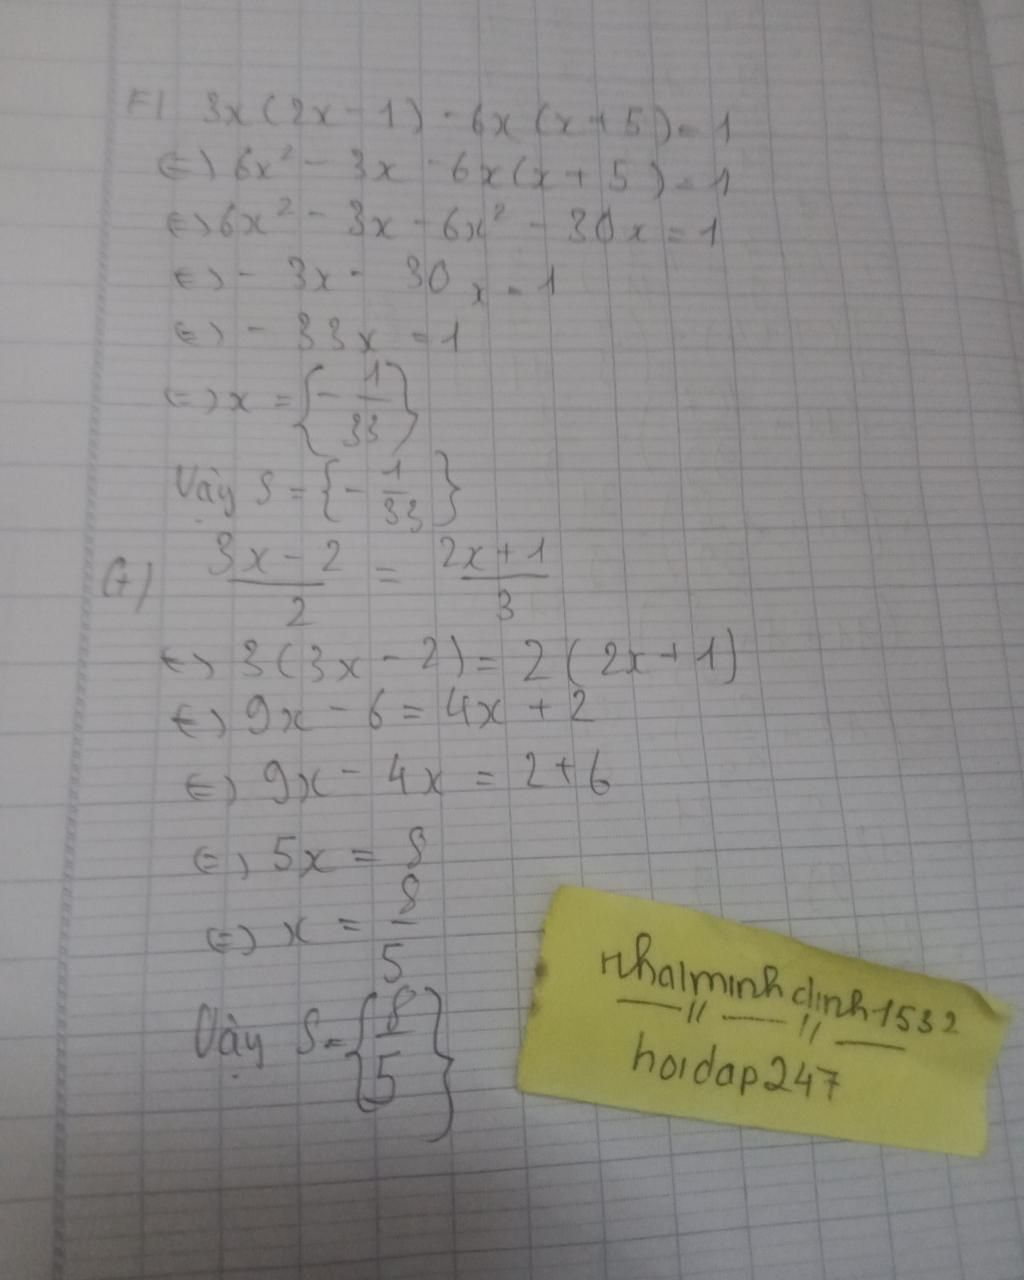 F) 3x(2x-1)-6x(x+5)=1
(=) 6x²-3x-6x(x+5)=1
(=) 6x²-3x-6x²-30x=1
(=) -3x-30x=1
(=) -33x=1
(=) x={-1/33}
Vậy S={-1/33}
G) 3x-2/2 = 2x+1/3
(=) 3(3x-2)=2(2x+1)
(=) 9x-6=4x+2
(=) 9x-4x=2+6
(=) 5x=8
(=) x=8/5
Vậy S={8/5}
nhalminhdinh1532
hoidap247